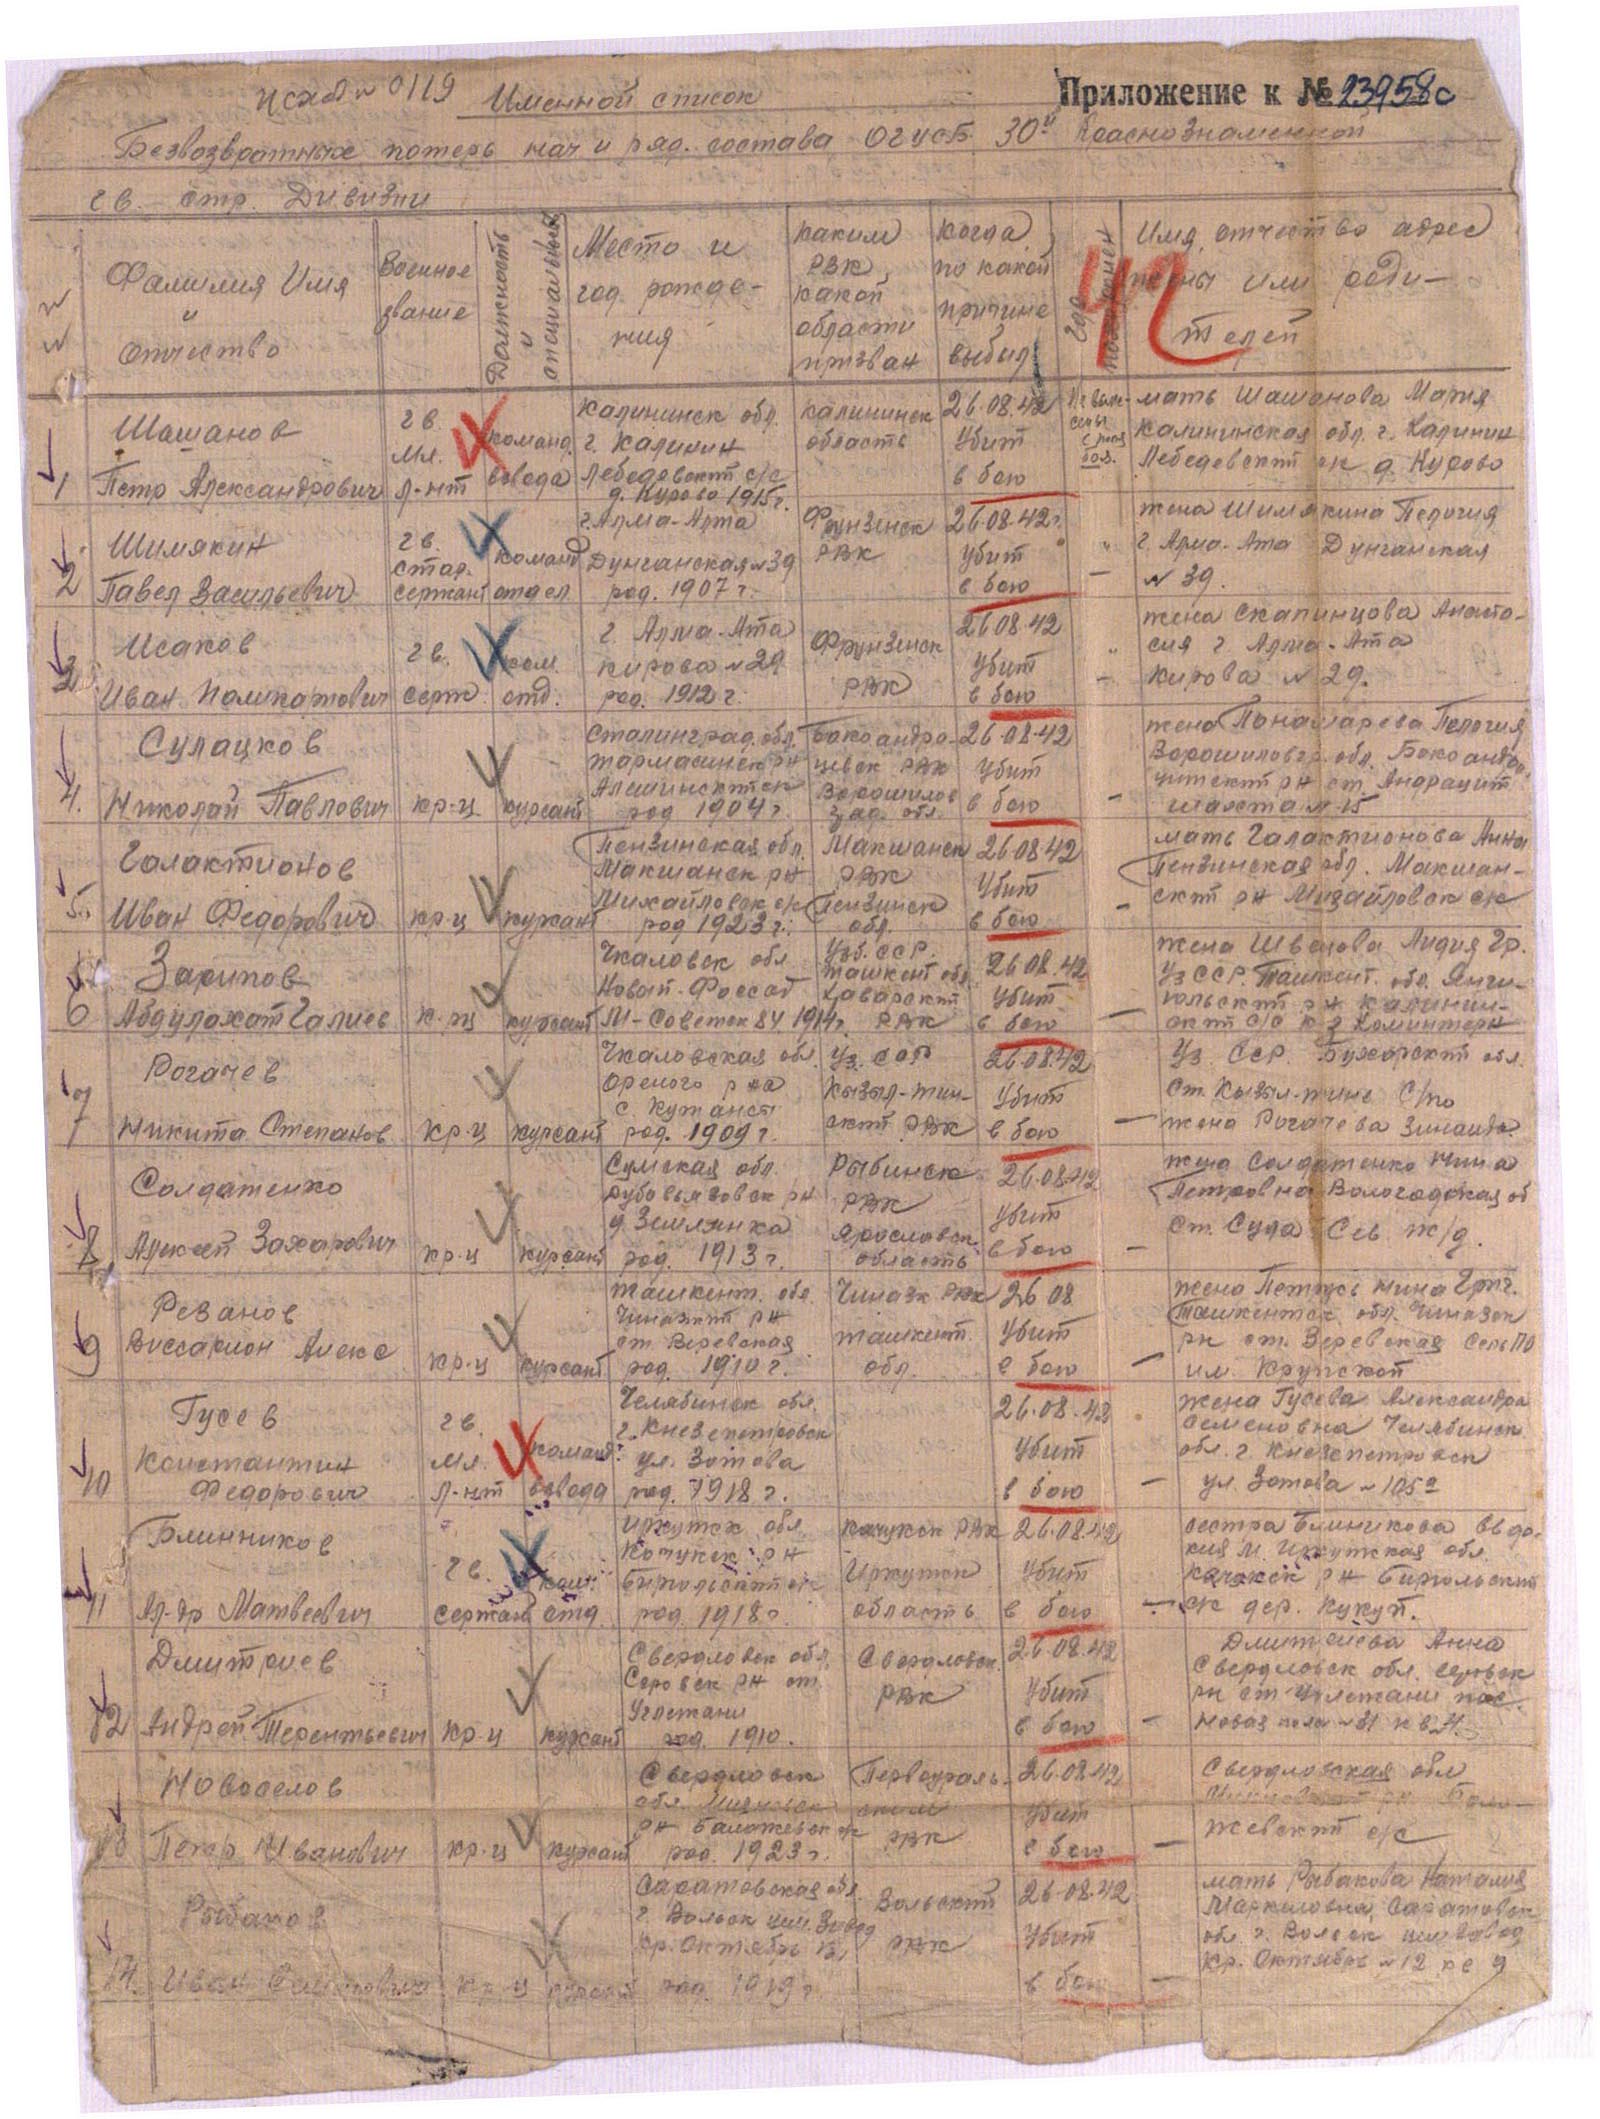 Исх № 0119 Именной список
Приложение к № 23958с
Безвозвратных потерь нач и ряд. состава ОгУСБ 30й Краснознаменной
гв. стр. Дивизии
№ № Фамилия Имя и отчество
Военное звание
Должность и специальность
Место и год рождения
каким РВК, какой области призван
когда, по какой причине выбыл
где похоронен
Имя, отчество адрес жены или роди-
телей
42
1
Шашанов
Петр Александрович
гв. мл. л-нт
команд. взвода
Калининск обл.
г. Калинин
Лебедевский с/с
д. Курово 1915 г.
калининск
область
26.08.42
убит
в бою
мать Шашанова Мария
Калининская обл. г. Калинин
Лебедевский ск д. Курово
2
Шимякин
Павел Васильевич
гв.
стар.
сержант
команд
отдел
г. Алма-Ата
Дунганская № 39
род. 1907 г.
Фрунзенск
РВК
26.08.42 г.
убит
в бою
жена Шимякина Пелогия
г. Алма-Ата Дунганская
№ 39.
3
Исаков
Иван
гв.
серж
ком.
отд.
г. Алма-Ата
Кирова № 29
род. 1912 г.
Фрунзенск
РВК
26.08.42
убит
в бою
жена Скапинцова Анаста-
сия г. Алма-Ата
Кирова № 29.
4.
Сулацков
Николай Павлович
кр-ц
курсант
Сталинград. обл.
род 1904 г.
РВК
Ворошилов
град. обл.
26.08.42
убит
в бою
жена Понамарева Пелогия
Ворошиловгр. обл.
рн ст. Андрацит
шахта № 15
5.
Галактионов
Иван Федорович
кр-ц
курсант
Пензинская обл.
Макшанск рн
Михайловск ск
род 1923 г.
Макшанск
РВК
Пензинск
обл.
26.08.42
убит
в бою
мать Галактионова Анна
Пензинская обл. Макшан-
ский рн Михайловск ск
6
Зарипов
Абдулахат Галиев
кр-ц
курсант
Чкаловск обл
М-Советск 84 1914 г.
Узб. ССР.
Ташкент. обл.
РВК
26.08.42
убит
в бою
жена Швецова Лидия Гр.
Уз ССР. Ташкент. обл. Янги-
юльский рн калинин-
ский с/с к-з Коминтерн
7
Рогачев
Никита Степанов.
кр-ц
курсант
Чкаловская обл.
род. 1909 г.
Уз. ССР
Кызыл-тип-
ский РВК
26.08.42
убит
в бою
Уз. ССР. Бухарский обл.
Ст. Кызыл-типе С/по
жена Рогачева Зинаида
8
Солдатенко
Алексей Захарович
кр-ц
курсант
Сумская обл.
д. Землянка
род. 1913 г.
Рыбинск
РВК
Ярославск.
область
26.08.42
убит
в бою
жена Солдатенко Нина
Петровна Вологодская об
Ст. Суда Сев ж/д.
9
Резанов
Виссарион Алекс
кр-ц
курсант
Ташкент. обл.
Чиназкий рн
ст. Веревская
род. 1910 г.
Чиназк РВК
Ташкент.
обл.
26 08
убит
в бою
жена Петрусь Нина Григ.
Ташкентск. обл. Чиназск
рн ст. Веревская СельПО
им. Крупской
10
Гусев
Константин
Федорович
гв.
мл.
л-нт
команд.
взвода
Челябинск обл.
г. Кнезепетровск
ул. Зотова
род. 1918 г.
26.08.42
убит
в бою
жена Гусева Александра
Семеновна Челябинск
обл. г. Кнезепетровск
ул. Зотова № 105а
11
Блинников
Ал-др Матвеевич
гв.
сержант
ком.
отд
Иркутск обл.
Качукск рн
род. 1918 г.
Качукск РВК
Иркутск
область
26.08.42
убит
в бою
сестра Блинникова Евдо-
кия М. Иркутская обл.
Качукск рн Бирюльский
ск дер. Кукуй.
12
Дмитриев
Андрей Терентьевич
кр-ц
курсант
Свердловск обл.
Серовск рн ст.
род. 1910.
Свердловск.
РВК
26.08.42
убит
в бою
Дмитриева Анна
Свердловск обл. Серовск
рн ст. пос.
Новая № 31 кв 4.
13
Новоселов
Петр Иванович
кр-ц
курсант
Свердловск
обл.
род. 1923 г.
Первоураль-
ским
РВК
26.08.42
убит
в бою
Свердловская обл
рн
с/с
14.
Рыбаков
Иван
кр-ц
курсант
Саратовская обл.
г. Вольск цем. Завод
Кр. Октябрь
род. 1919 г.
Вольский
РВК
26.08.42
убит
в бою
мать Рыбакова Наталия
Саратовск
обл. г. Вольск цем Завод
Кр. Октябрь № 12